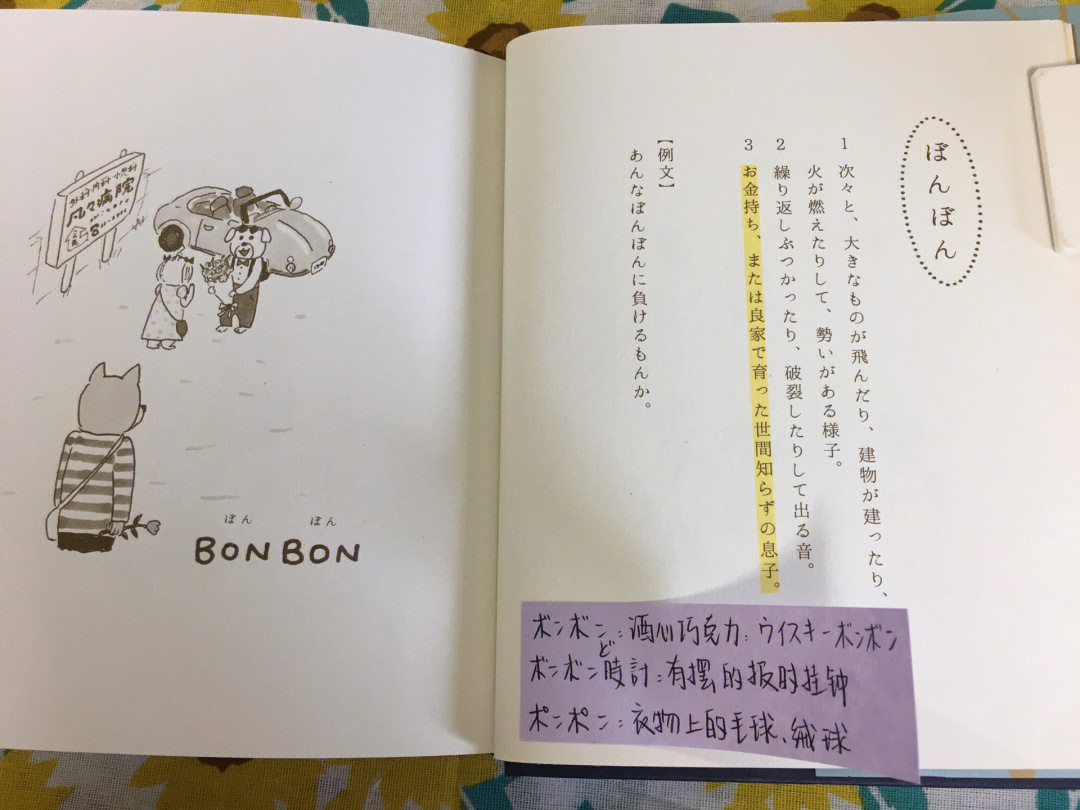 外科・内科・小児科
凡々病院
ぼん ぼん
BON BON
ぼんぼん
1 次々と、大きなものが飛んだり、建物が建ったり、
火が燃えたりして、勢いがある様子。
2 繰り返しぶつかったり、破裂したりして出る音。
3 お金持ち、または良家で育った世間知らずの息子。
【例文】
あんなぼんぼんに負けるもんか。
ボンボン：酒心巧克力：ウイスキーボンボン
ど
ボンボン時計：有摆的报时挂钟
ポンポン：衣物上的毛球、绒球